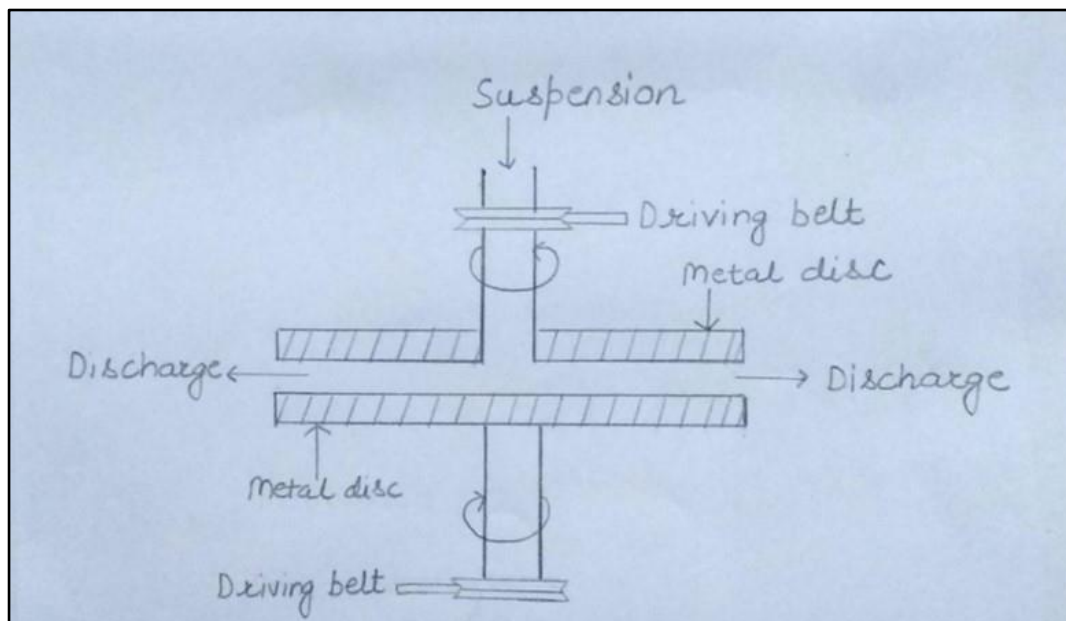 Suspension
Driving belt
Metal disc
Discharge
Discharge
Metal disc
Driving belt